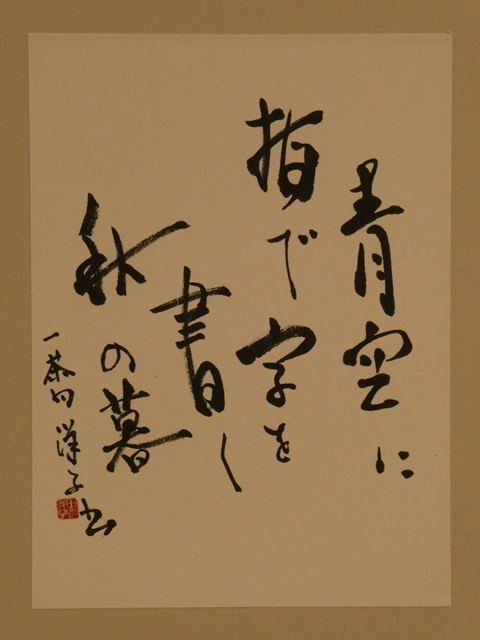 青空に
指で字を
書く
秋の暮
一茶句 洋子書